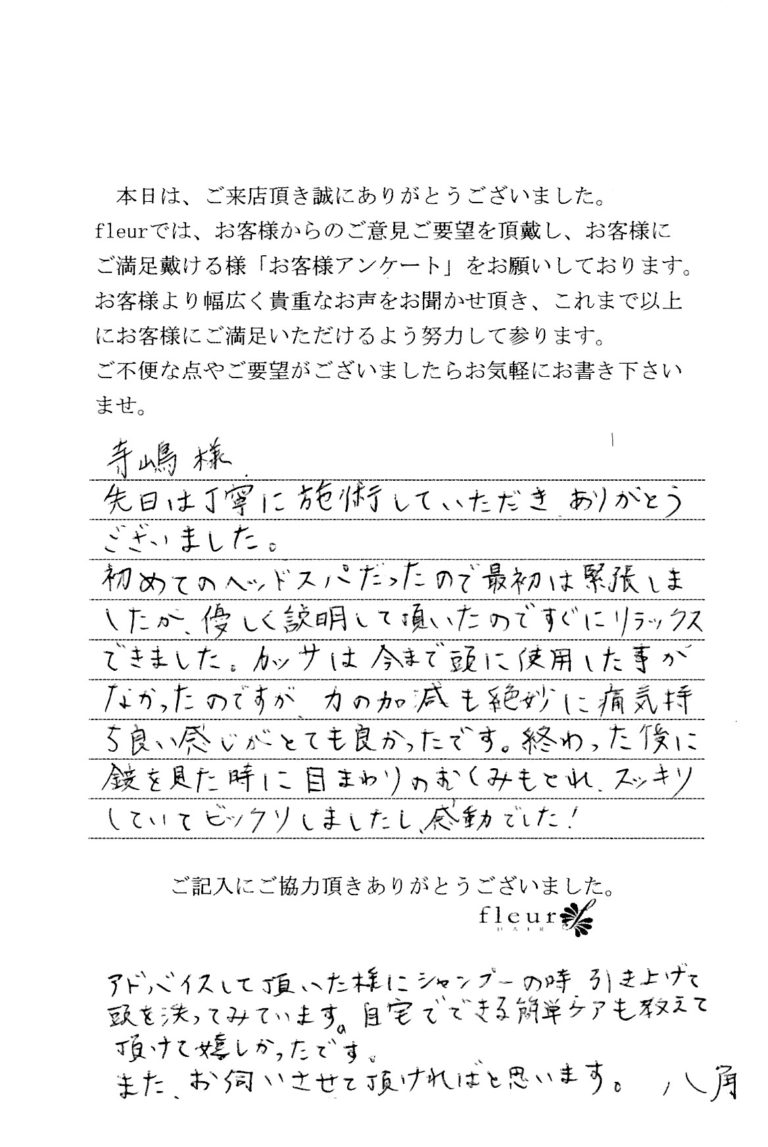 本日は、ご来店頂き誠にありがとうございました。
fleurでは、お客様からのご意見ご要望を頂戴し、お客様に
ご満足戴ける様「お客様アンケート」をお願いしております。
お客様より幅広く貴重なお声をお聞かせ頂き、これまで以上
にお客様にご満足いただけるよう努力して参ります。
ご不便な点やご要望がございましたらお気軽にお書き下さい
ませ。
寺嶋様
先日は丁寧に施術していただき、ありがとう
ございました。
初めてのヘッドスパだったので最初は緊張しま
したが、優しく説明して頂いたのですぐにリラックス
できました。カッサは今まで頭に使用した事が
なかったのですが、力の加減も絶妙に痛気持
ち良い感じがとても良かったです。終わった後に
鏡を見た時に目まわりのむくみもとれ、スッキリ
していてビックリしましたし、感動でした!
ご記入にご協力頂きありがとうございました。
fleur
HAIR
アドバイスして頂いた様にシャンプーの時、引き上げて
頭を洗ってみています。自宅でできる簡単ケアも教えて
頂けて嬉しかったです。
また、お伺いさせて頂ければと思います。 八角